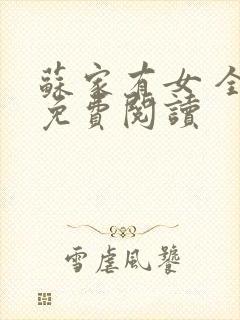 蘇家有女 全
免費閱讀
雪虐風饕